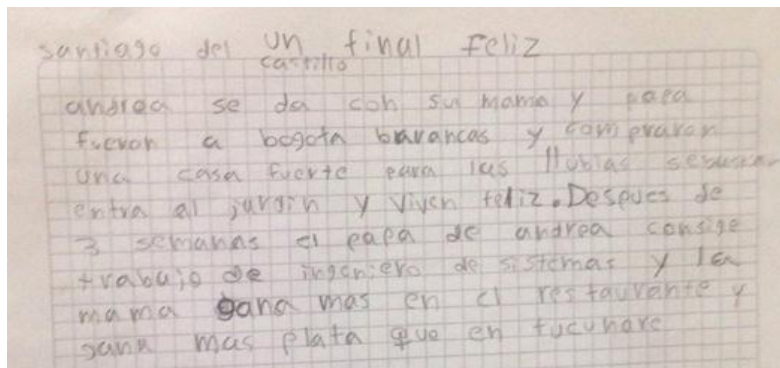 santiago del un final Feliz
castillo
andrea se da con su mama y papa
fueron a bogota barancas y compraron
una casa fuerte para las llubias sebastian
entra al jurgin y viven feliz. Despues de
3 semanas el papa de andrea consige
trabajo de ingeniero de sistemas y la
mama gana mas en el restaurante y
gana mas plata que en tucunare